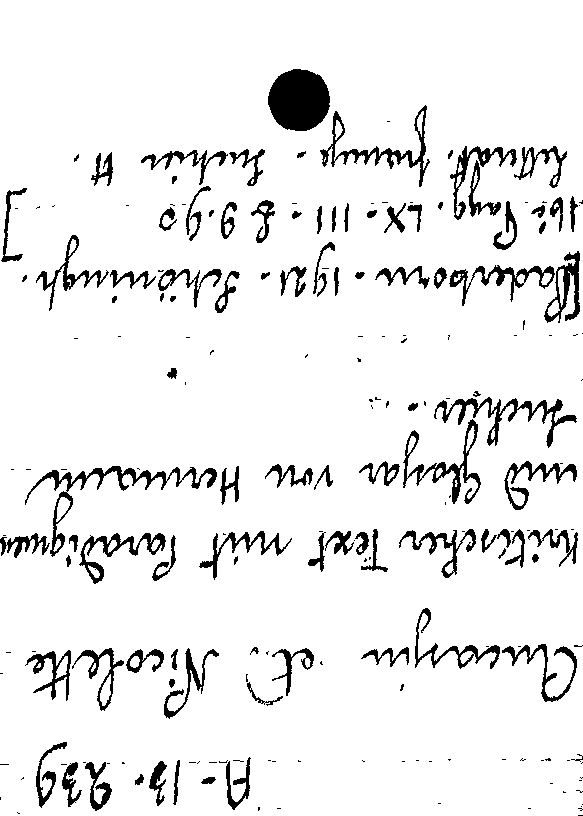 A-13-239
Aucassin et Nicolette
Kritischer Text mit Paradigmen
und Glossar von Hermann
Suchier..
[Paderborn - 1921. Schöningh.
16º Pagg. LX - 111 - £ 9.90 ]
Letterat. franc. - Suchier H.